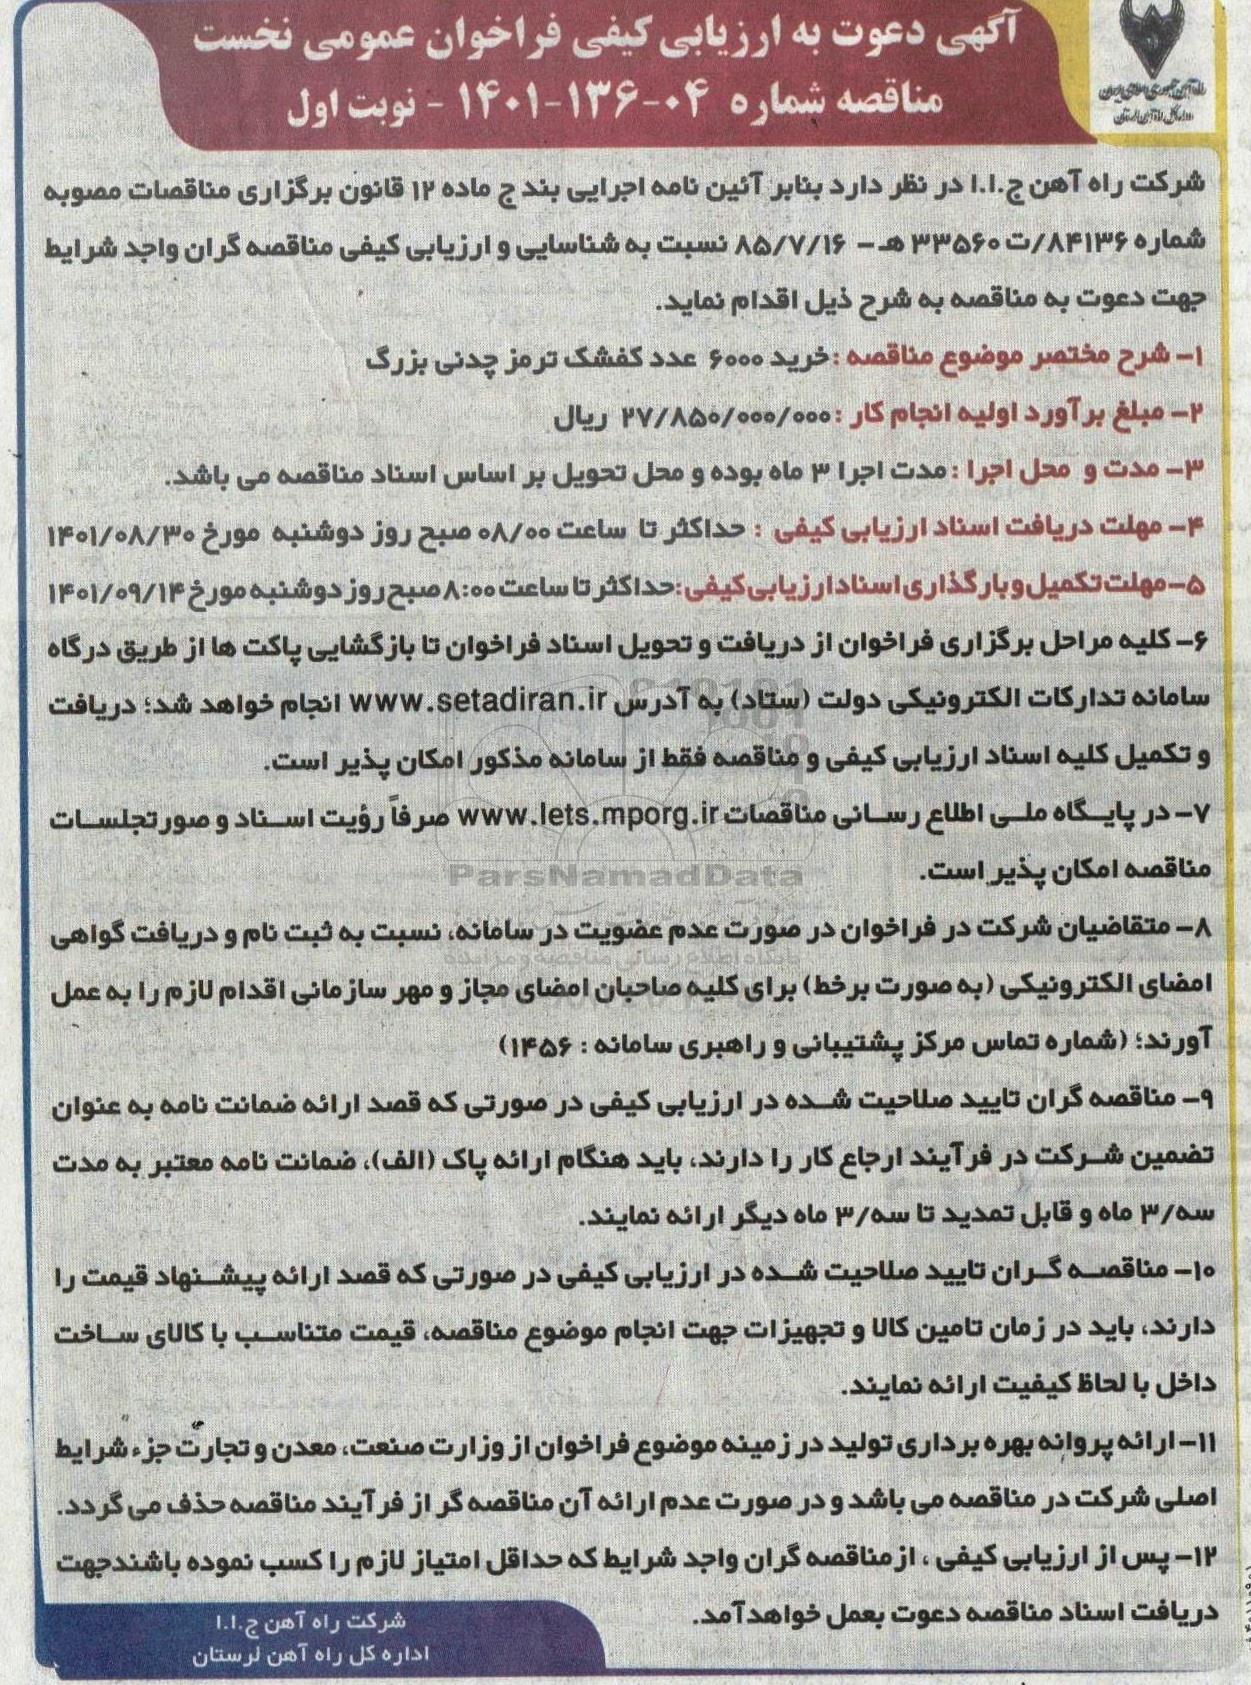 آگهی دعوت به ارزیابی کیفی فراخوان عمومی نخست
مناقصه شماره ۰۴-۱۳۶-۱۴۰۱ - نوبت اول
راه آهن جمهوری اسلامی ایران
اداره کل راه آهن لرستان
شرکت راه آهن ج.ا.ا در نظر دارد بنابر آئین نامه اجرایی بند ج ماده ۱۲ قانون برگزاری مناقصات مصوبه
شماره ۸۴۱۳۶/ت ۳۳۵۶۰ هـ - ۸۵/۷/۱۶ نسبت به شناسایی و ارزیابی کیفی مناقصه گران واجد شرایط
جهت دعوت به مناقصه به شرح ذیل اقدام نماید.
۱- شرح مختصر موضوع مناقصه :خرید ۶۰۰۰ عدد کفشک ترمز چدنی بزرگ
۲- مبلغ برآورد اولیه انجام کار :۲۷/۸۵۰/۰۰۰/۰۰۰ ریال
۳- مدت و محل اجرا :مدت اجرا ۳ ماه بوده و محل تحویل بر اساس اسناد مناقصه می باشد.
۴- مهلت دریافت اسناد ارزیابی کیفی : حداکثر تا ساعت ۰۸/۰۰ صبح روز دوشنبه مورخ ۱۴۰۱/۰۸/۳۰
۵-مهلت تکمیل و بارگذاری اسناد ارزیابی کیفی:حداکثر تا ساعت ۸:۰۰ صبح روز دوشنبه مورخ ۱۴۰۱/۰۹/۱۴
۶- کلیه مراحل برگزاری فراخوان از دریافت و تحویل اسناد فراخوان تا بازگشایی پاکت ها از طریق درگاه
سامانه تدارکات الکترونیکی دولت (ستاد) به آدرس www.setadiran.ir انجام خواهد شد؛ دریافت
و تکمیل کلیه اسناد ارزیابی کیفی و مناقصه فقط از سامانه مذکور امکان پذیر است.
۷- در پایگاه ملی اطلاع رسانی مناقصات www.iets.mporg.ir صرفاً رؤیت اسناد و صورتجلسات
مناقصه امکان پذیر است.
ParsNamadData
پایگاه اطلاع رسانی مناقصه و مزایده
۸- متقاضیان شرکت در فراخوان در صورت عدم عضویت در سامانه، نسبت به ثبت نام و دریافت گواهی
امضای الکترونیکی (به صورت برخط) برای کلیه صاحبان امضای مجاز و مهر سازمانی اقدام لازم را به عمل
آورند؛ (شماره تماس مرکز پشتیبانی و راهبری سامانه : ۱۴۵۶)
۹- مناقصه گران تایید صلاحیت شده در ارزیابی کیفی در صورتی که قصد ارائه ضمانت نامه به عنوان
تضمین شرکت در فرآیند ارجاع کار را دارند، باید هنگام ارائه پاک (الف)، ضمانت نامه معتبر به مدت
سه/۳ ماه و قابل تمدید تا سه/۳ ماه دیگر ارائه نمایند.
۱۰- مناقصه گران تایید صلاحیت شده در ارزیابی کیفی در صورتی که قصد ارائه پیشنهاد قیمت را
دارند، باید در زمان تامین کالا و تجهیزات جهت انجام موضوع مناقصه، قیمت متناسب با کالای ساخت
داخل با لحاظ کیفیت ارائه نمایند.
۱۱- ارائه پروانه بهره برداری تولید در زمینه موضوع فراخوان از وزارت صنعت، معدن و تجارت جزء شرایط
اصلی شرکت در مناقصه می باشد و در صورت عدم ارائه آن مناقصه گر از فرآیند مناقصه حذف می گردد.
۱۲- پس از ارزیابی کیفی ، از مناقصه گران واجد شرایط که حداقل امتیاز لازم را کسب نموده باشند جهت
دریافت اسناد مناقصه دعوت بعمل خواهد آمد.
شرکت راه آهن ج.ا.ا
اداره کل راه آهن لرستان